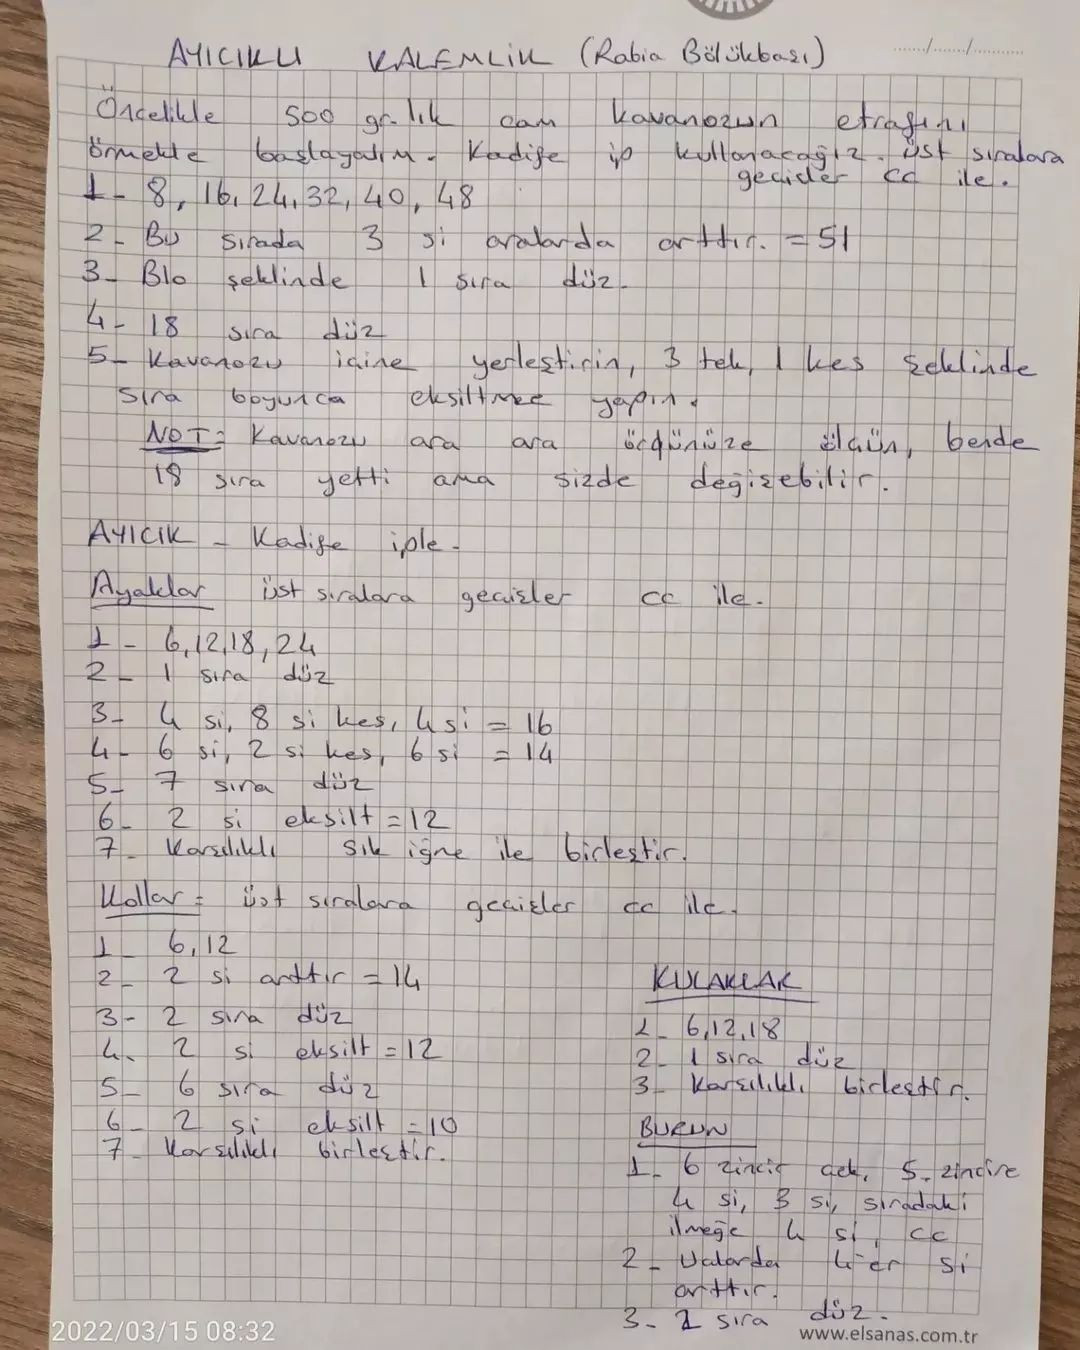 AYICIKLI KALEMLİK (Rabia Bölükbaşı) ....../....../............
Öncelikle 500 gr.lık cam kavanozun etrafını
örmekte başlayalım. Kadife ip kullanacağız. üst sıralara
geçişler cc ile.
1- 8, 16, 24, 32, 40, 48
2- Bu sırada 3 si aralarda arttır. = 51
3- Blo şeklinde 1 sıra düz.
4- 18 sıra düz
5- Kavanozu içine yerleştirin, 3 tek, 1 kes şeklinde
sıra boyunca eksiltmee yapın.
NOT= Kavanozu ara ara örgünüze ölçün, bende
18 sıra yetti ama sizde değişebilir.
AYICIK - Kadife iple.
Ayaklar üst sıralara geçişler cc ile.
1- 6,12,18,24
2- 1 sıra düz
3- 4 si, 8 si kes, 4 si = 16
4- 6 si, 2 si kes, 6 si = 14
5- 7 sıra düz
6- 2 si eksilt = 12
7- Karşılıklı sık iğne ile birleştir.
Kollar= üst sıralara geçişler cc ile.
1- 6,12
2- 2 si arttır = 14
3- 2 sıra düz
4- 2 si eksilt = 12
5- 6 sıra düz
6- 2 si eksilt = 10
7- Karşılıklı birleştir.
KULAKLAR
1- 6,12,18
2- 1 sıra düz
3- Karşılıklı birleştir.
BURUN
1- 6 zincir çek, 5. zincire
4 si, 3 si, sıradaki
ilmeğe 4 si, cc
2- Uclarda 4'er si
arttır.
3- 2 sıra düz.
2022/03/15 08:32
www.elsanas.com.tr